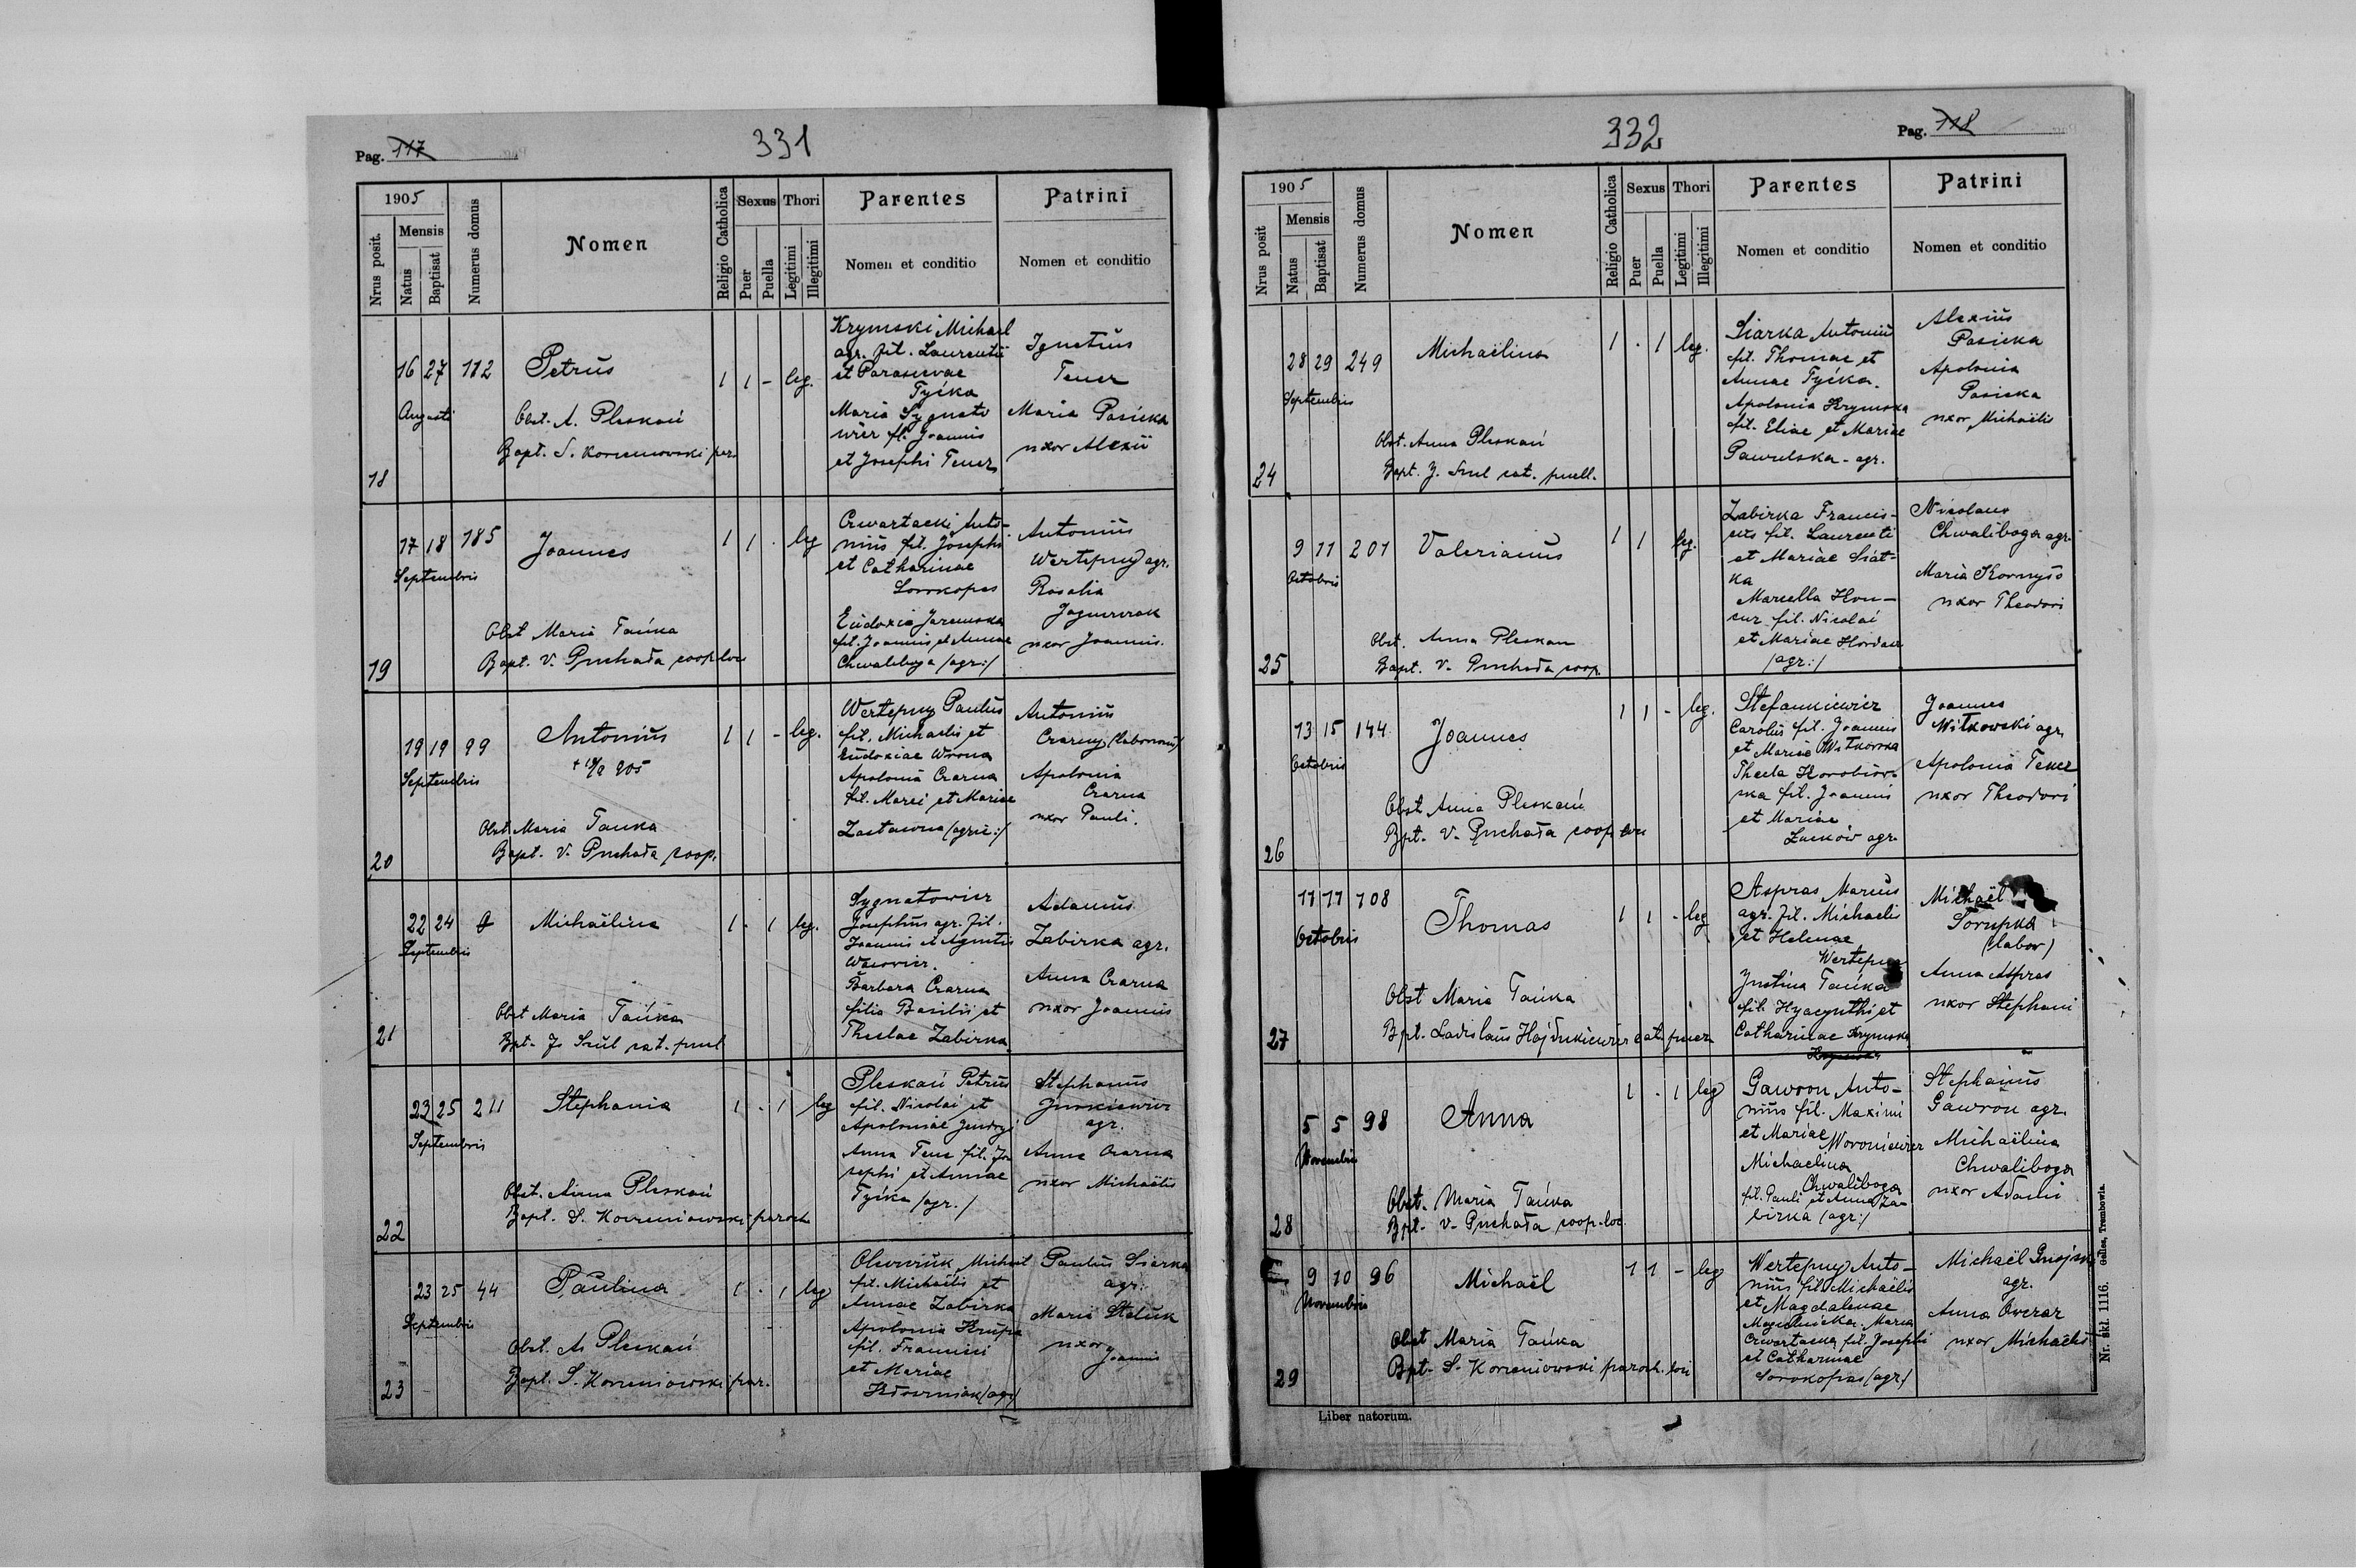 Pag. 117
331
1905
Nrus posit.
Mensis
Natus
Baptisat
Numerus domus
Nomen
Religio Catholica
Sexus
Puer
Puella
Thori
Legitimi
Illegitimi
Parentes
Nomen et conditio
Patrini
Nomen et conditio
18
16 27 112
Augusti
Petrus
Obst. A. Pleskań
Bapt. S.
1 1 - leg.
Krymski Michael
agr. fil. Laurentii
et Parascevae
Tyćka
Maria Sygnato
wicz fil. Joannis
et Josephi Tener
Ignatius
Tener
Maria Pasieka
uxor Alexii
19
17 18 185
Septembris
Joannes
Obst Maria Tańka
Bapt. V. Puchała coop. loci
1 1 . leg
Czwartacki Anto-
nius fil. Josephi
et Catharinae
Sorokopas
Eudoxia Jaremska
fil. Joannis et Annae
Chwaliboga /agr:/
Antonius
Wertepny agr.
Rosalia
uxor Joannis.
20
19 19 99
Septembris
Antonius
Obst Maria Tańka
Bapt. V. Puchała coop.
1 1 - leg.
Wertepny Paulus
fil. Michaelis et
Eudoxiae Wrona
Apolonia Czarna
fil. Marci et Mariae
Zastawna /agric:/
Antonius
Czarny
Apolonia
Czarna
uxor Pauli.
21
22 24 9
Septembris
Michaëlina
Obst Maria Tańka
Bpt. J. Szul cat. puel
1 . 1 leg.
Sygnatowicz
Josephus agr. fil.
Joannis et Agnetis
Barbara Czarna
filia Basilii et
Theclae Zabirka
Adamus
Zabirka agr.
Anna Czarna
uxor Joannis
22
23 25 211
Septembris
Stephania
Obst. Anna Pleskań
Bapt. S. Korzeniowski paroch
1 . 1 leg
Pleskań Petrus
fil. Nicolai et
Apoloniae
Anna Tener fil. Jo
sephi et Annae
Tyćka /agr./
Stephanus
Jurkiewicz
agr.
Anna Czarna
uxor Michaëlis
23
23 25 44
Septembris
Paulina
Obst. A. Pleskań
Bapt. S. Korzeniowski par.
1 . 1 leg
Michael
fil. Michaëlis et
Annae Zabirka
Apolonia Krupa
fil. Francisci
et Mariae
Paulus Siarka
agr.
Maria
uxor
Joannis
332
Pag. 118
1905
Nrus posit
Mensis
Natus
Baptisat
Numerus domus
Nomen
Religio Catholica
Sexus
Puer
Puella
Thori
Legitimi
Illegitimi
Parentes
Nomen et conditio
Patrini
Nomen et conditio
24
28 29 249
Septembris
Michaëlina
Obst. Anna Pleskań
Bapt. J. Szul cat. puell.
1 . 1 leg.
Siarka Antonius
fil. Thomae et
Annae Tyćka.
Apolonia Krymska
fil. Eliae et Mariae
Pawulska - agr.
Alexius
Pasieka
Apolonia
Pasieka
uxor Michaëlis
25
9 11 201
Octobris
Valerianus
Obst. Anna Pleskan
Bapt. V. Puchała coop.
1 1 leg.
Zabirka Francis-
cus fil. Laurenti
et Mariae Siat-
ka
Marcella
fil. Nicolai
et Mariae
/agr:/
Nicolaus
Chwaliboga agr.
Maria Kornyło
uxor Theodori
26
13 15 144
Octobris
Joannes
Obst Anna Pleskań
Bpt. V. Puchała coop loci
1 1 - leg.
Stefankiewicz
Carolus fil. Joannis
et Mariae Witkowska
Thecla
fil. Joannis
et Mariae
agr.
Joannes
Witkowski agr.
Apolonia Tener
uxor Theodori
27
11 11 108
Octobris
Thomas
Obst Maria Tańka
Bpt. Ladislaus Hajdukiewicz cat. puer.
1 1 - leg
Aspras Marcus
agr. fil. Michaelis
et Helenae
Wertepna
Justina Tańka
fil. Hyacynthi et
Catharinae Krymska
Michaël
(labor)
Anna Aspras
uxor Stephani
28
5 5 98
Novembris
Anna
Obst. Maria Tańka
Bpt. V. Puchała coop. loc.
1 . 1 leg
Gawron Anto-
nius fil. Maximi
et Mariae Woroniewicz
Michaelina
Chwaliboga
fil. Pauli et Anna Za-
birka /agr:/
Stephanus
Gawron agr.
Michaëlina
Chwaliboga
uxor Adami
29
9 10 96
Novembris
Michaël
Obst Maria Tańka
Bpt. S. Korzeniowski paroch. loci
1 1 - leg
Wertepny Anto-
nius fil Michaëlis
et Magdalenae
Maria
Czwartacka fil. Josephi
et Catharinae
Sorokopas /agr/
Michaël
agr.
Anna Owczar
uxor Michaëlis
Liber natorum.
Nr. skł. 1116. Gelles, Trembowla.